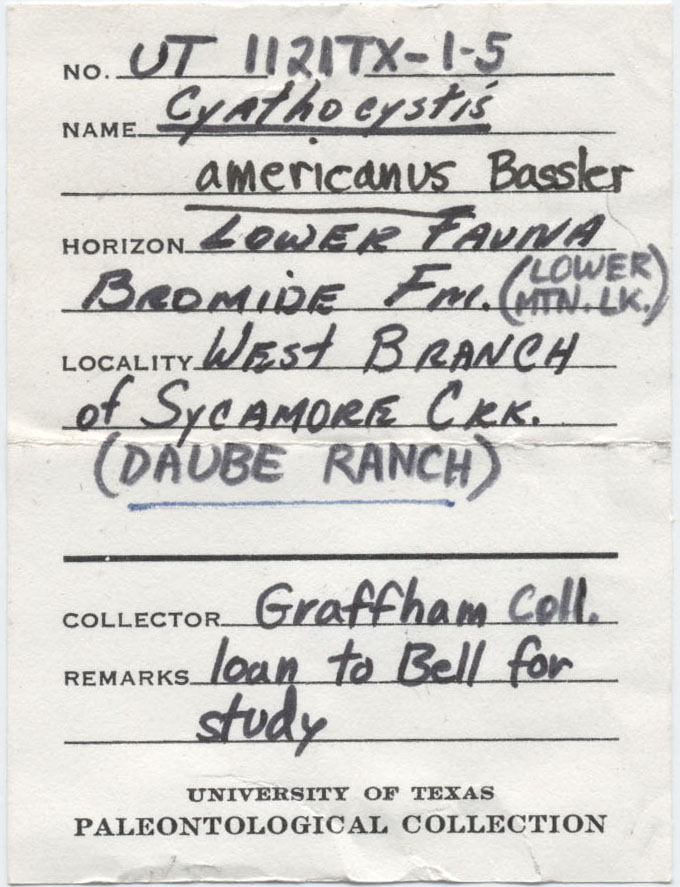 NO. UT 1121TX-1-5
NAME Cyathocystis
americanus Bassler
HORIZON LOWER FAUNA
BROMIDE Fm. (LOWER
MTN. LK.)
LOCALITY WEST BRANCH
of SYCAMORE CRK.
(DAUBE RANCH)
COLLECTOR Graffham Coll.
REMARKS loan to Bell for
study
UNIVERSITY OF TEXAS
PALEONTOLOGICAL COLLECTION